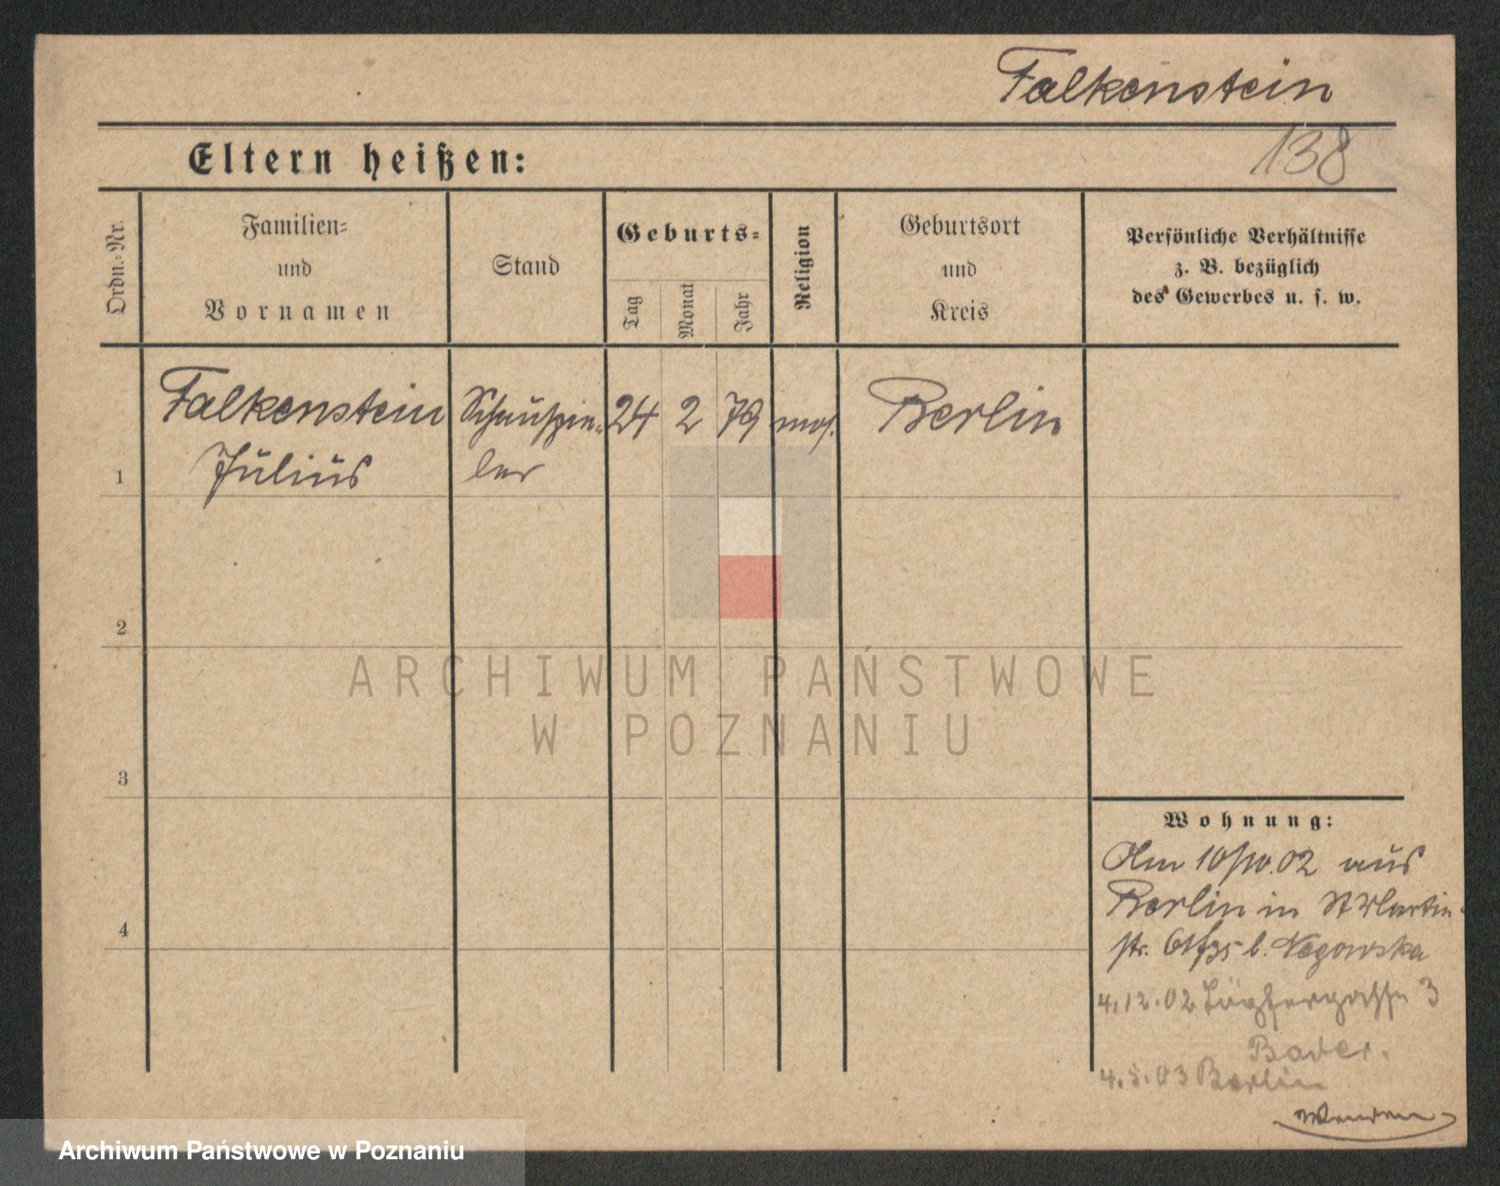 Falkenstein
138
Eltern heißen:
Ordn.-Nr.
Familien-
und
Vornamen
Stand
Geburts-
Tag
Monat
Jahr
Religion
Geburtsort
und
Kreis
Persönliche Verhältnisse
z. B. bezüglich
des Gewerbes u. s. w.
1
Falkenstein
Julius
Schauspie-
ler
24
2
79
mos.
Berlin
2
3
4
ARCHIWUM PAŃSTWOWE
W POZNANIU
Wohnung:
Am 10/10.02 aus
Berlin in St Martin-
str. b.
4.12.02 3
Bader.
4.5.03 Berlin
Wenden
Archiwum Państwowe w Poznaniu